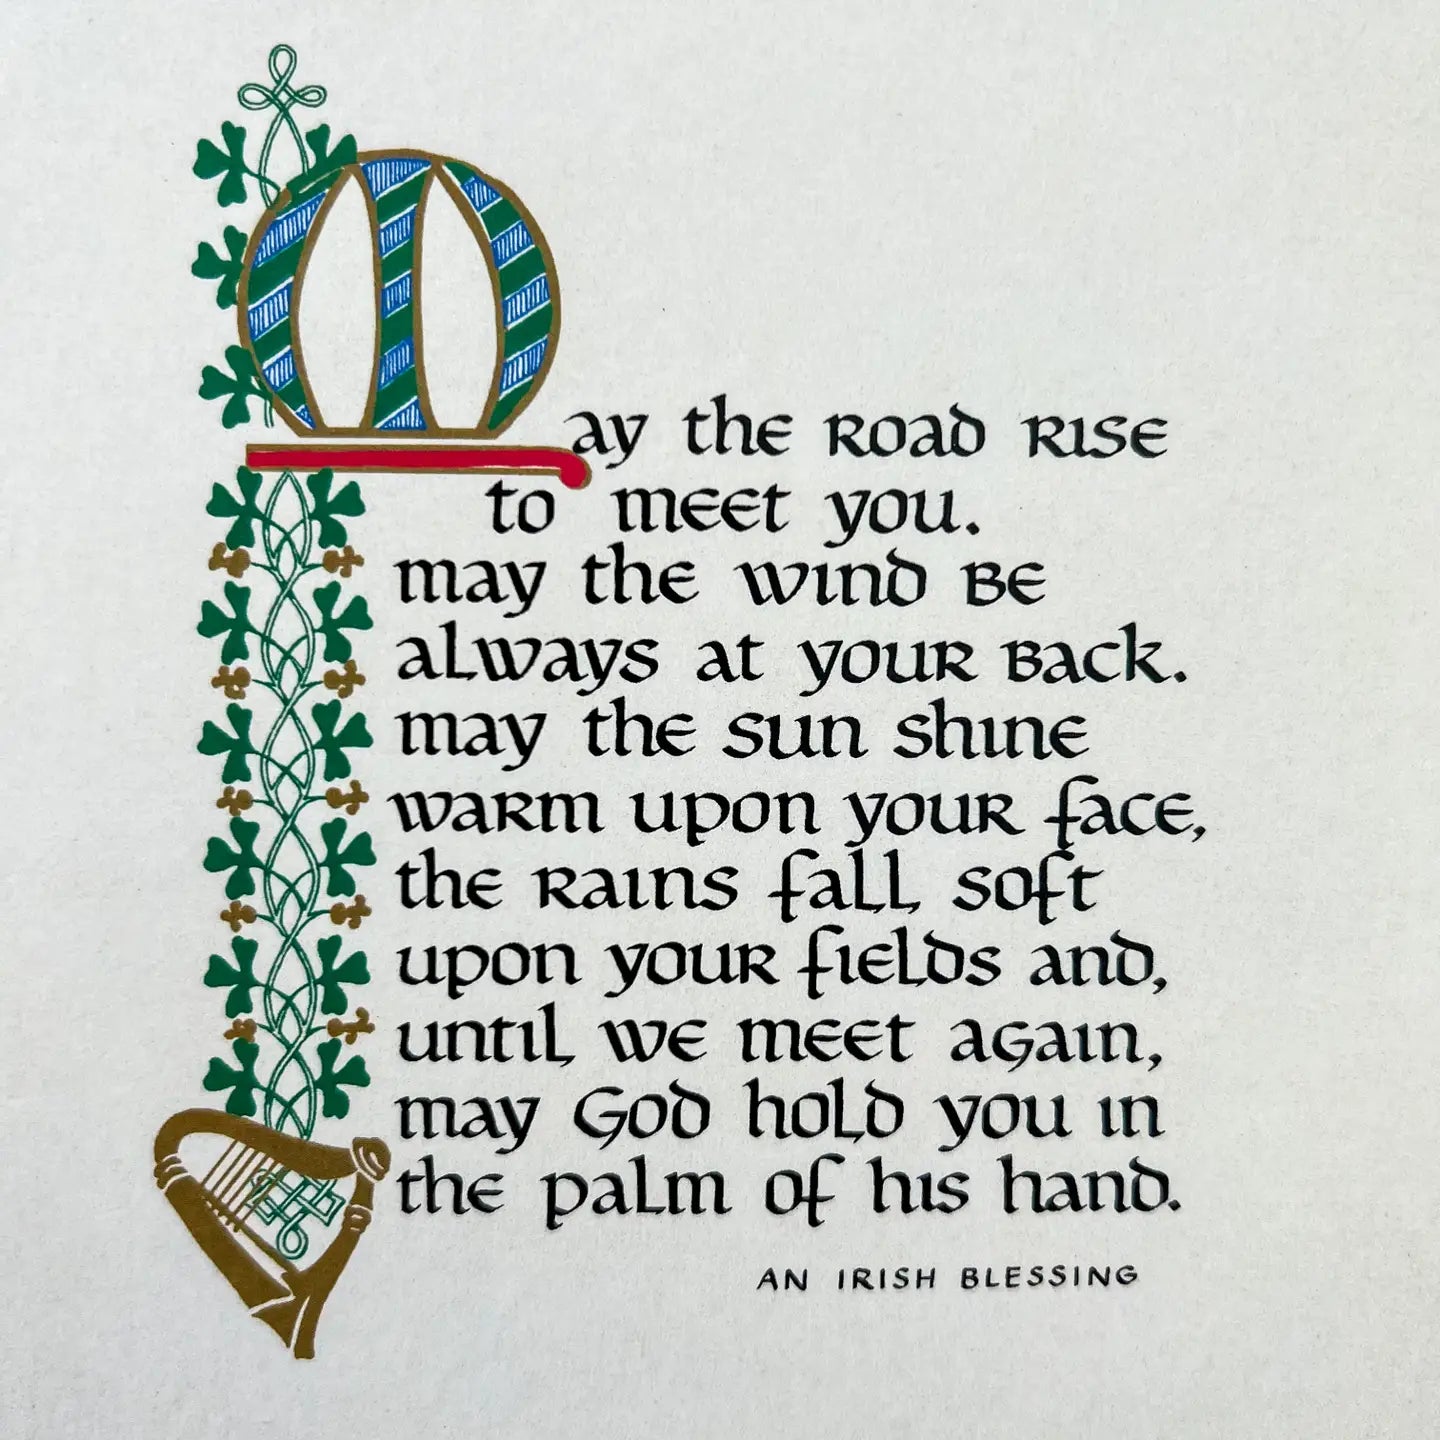 May the road rise
to meet you.
may the wind be
always at your back.
may the sun shine
warm upon your face,
the rains fall soft
upon your fields and,
until we meet again,
may God hold you in
the palm of his hand.
AN IRISH BLESSING